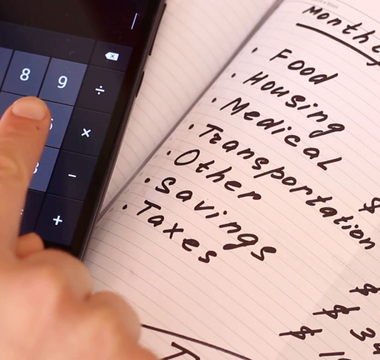 8 9 ÷
×
−
+
Monthl
• Food
• Housing
• Medical
• Transportation
• Other
• Savings
• Taxes
$
$
$ 3
$ 1